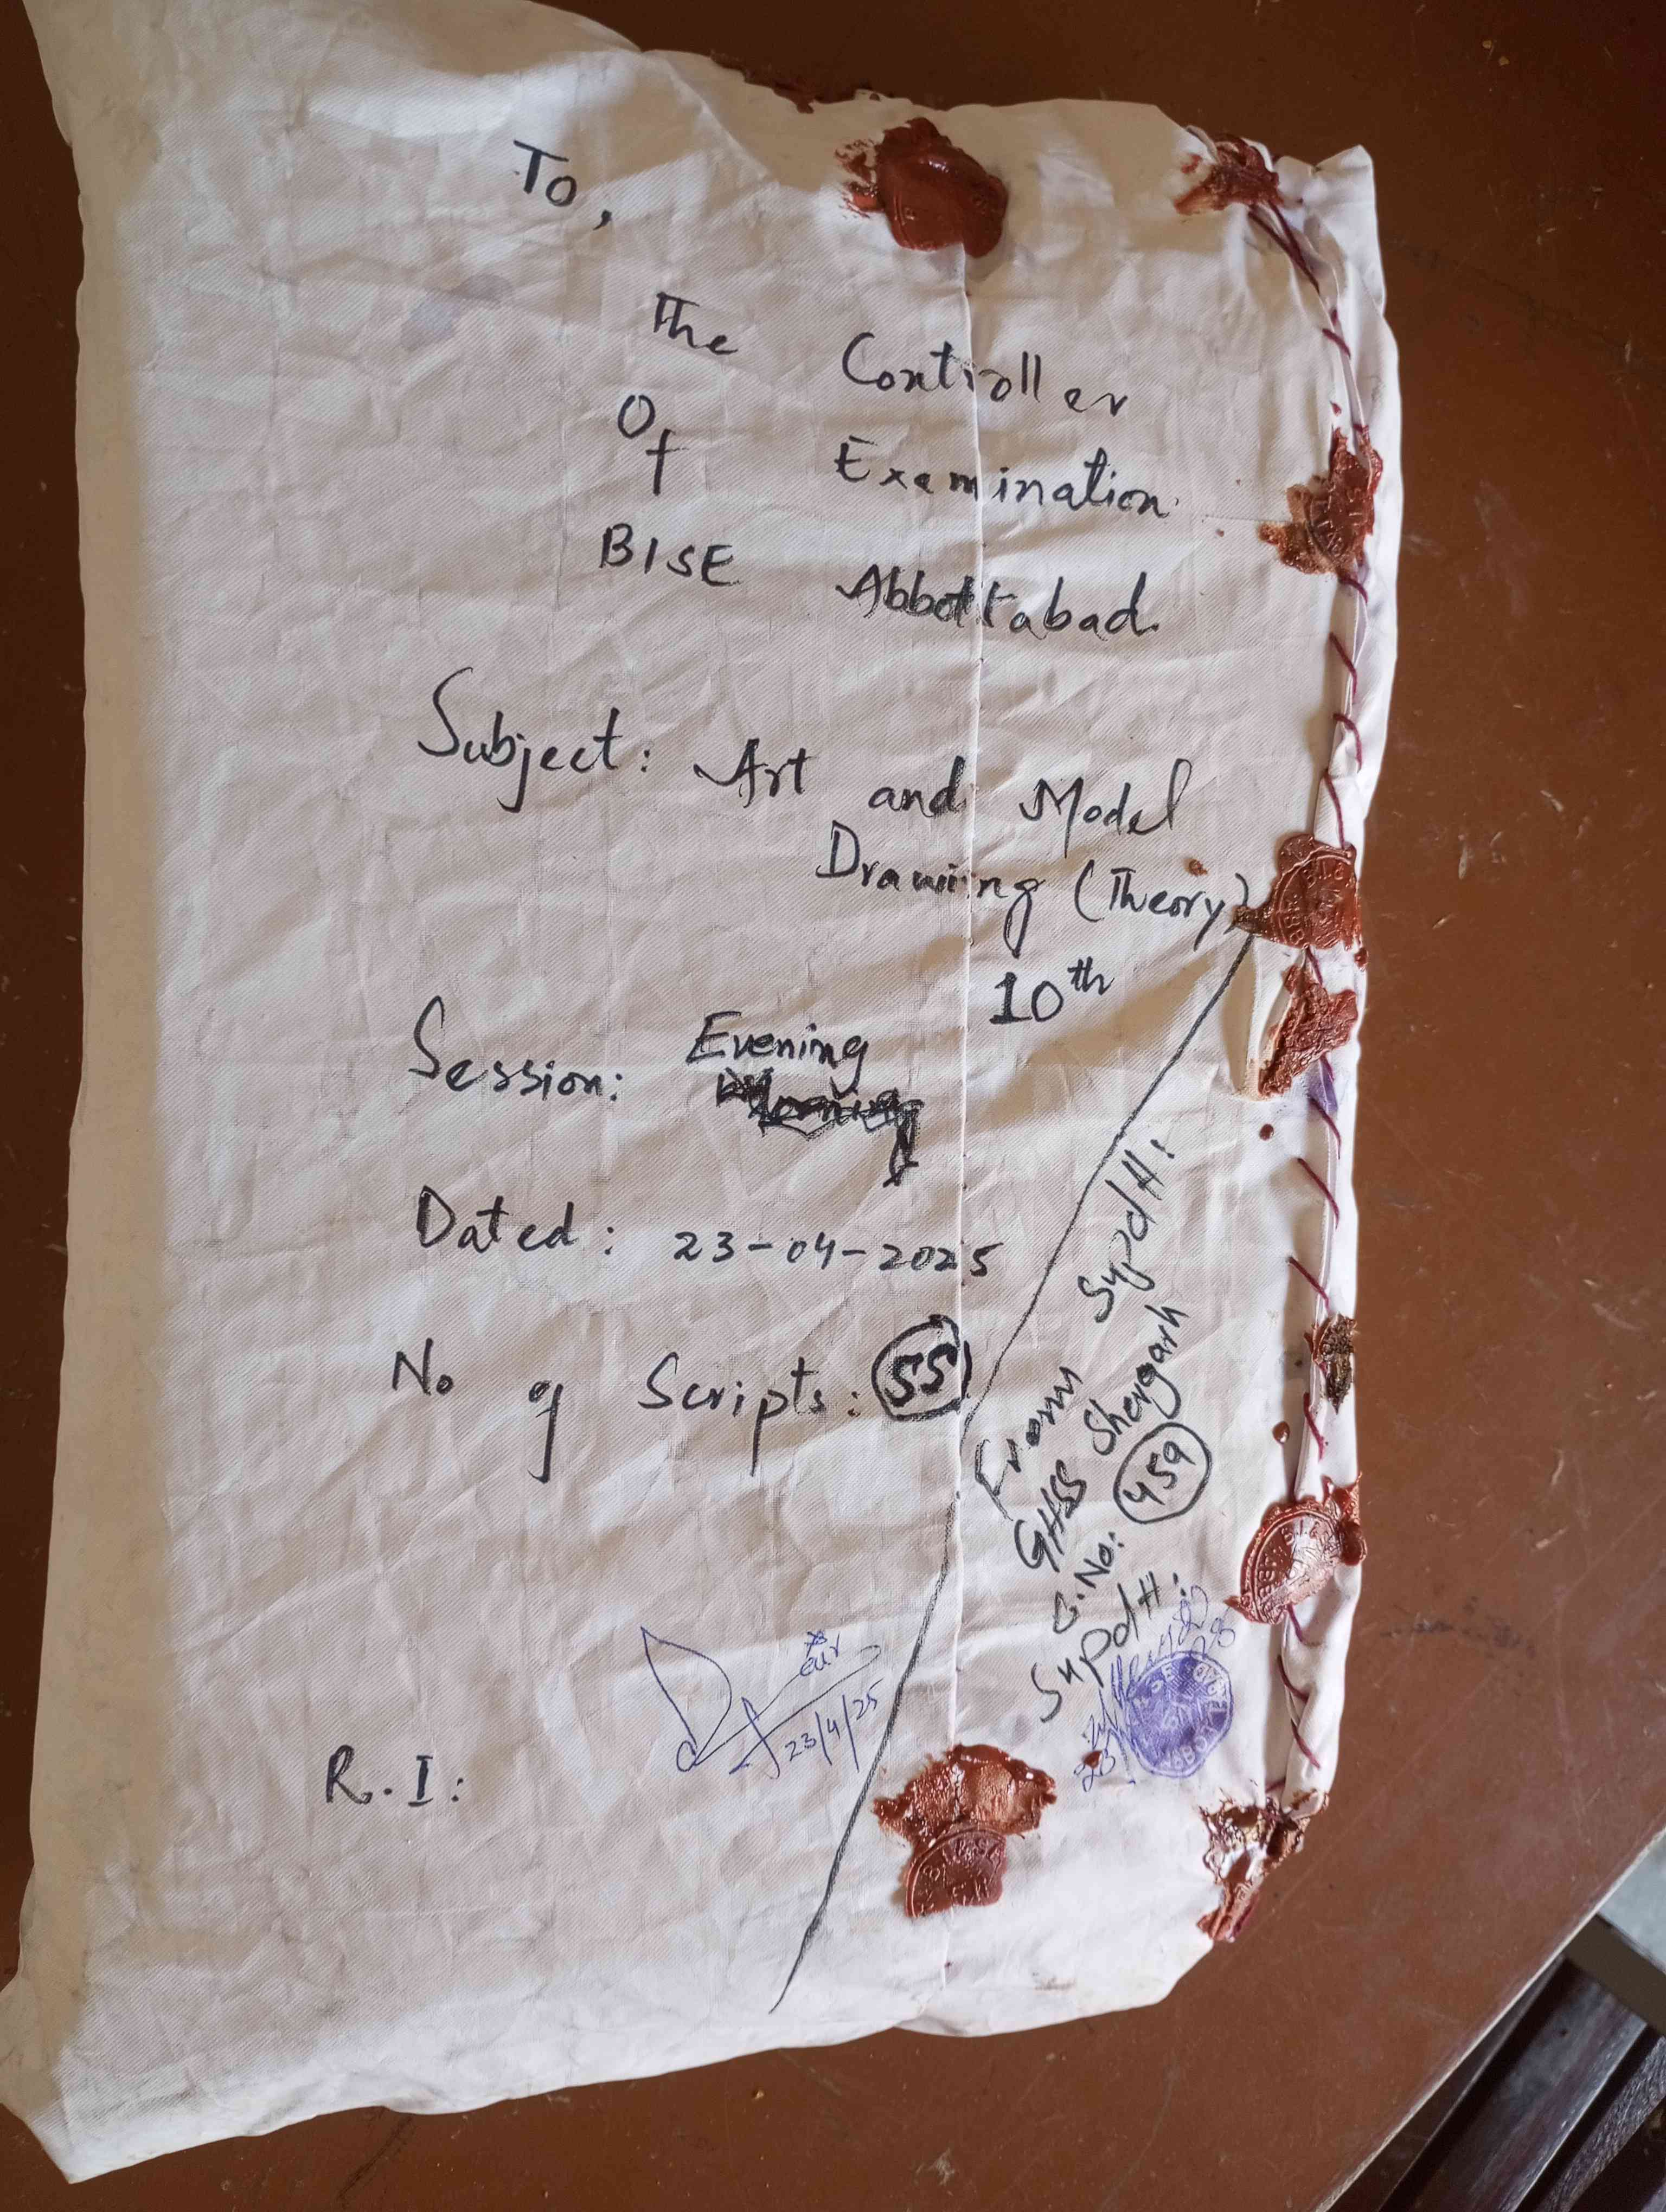 To,
The Controller
Of Examination
BISE Abbottabad.
Subject: Art and Model
Drawing (Theory)
10th
Session: Evening
Dated: 23-04-2025
No of Scripts: 55
R.I:
23/4/25
Supdtt:
From
GHSS Shergarh
C.No: 459
Supdtt: